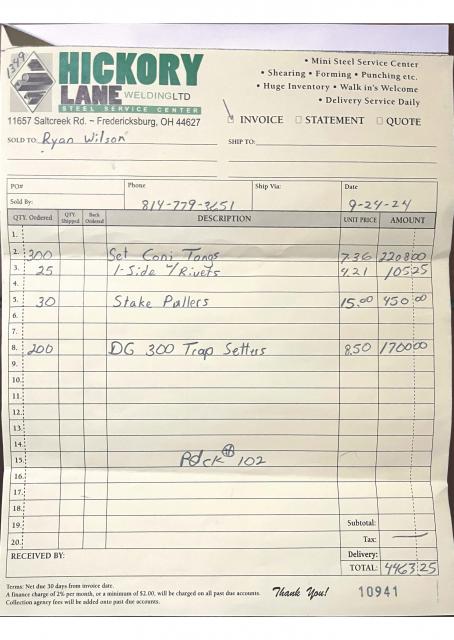 1349
HICKORY
LANE WELDING LTD
STEEL SERVICE CENTER
11657 Saltcreek Rd. ~ Fredericksburg, OH 44627
• Mini Steel Service Center
• Shearing • Forming • Punching etc.
• Huge Inventory • Walk in's Welcome
• Delivery Service Daily
INVOICE STATEMENT QUOTE
SOLD TO: Ryan Wilson SHIP TO:
PO# Phone Ship Via: Date
Sold By: 814-779-3651 9-24-24
QTY. Ordered QTY. Shipped Back Ordered DESCRIPTION UNIT PRICE AMOUNT
1.
2. 300 Set Coni Tongs 7.36 2208 00
3. 25 1-Side w/ Rivets 4.21 105 25
4.
5. 30 Stake Pullers 15.00 450 00
6.
7.
8. 200 DG 300 Trap Setters 8.50 1700 00
9.
10.
11.
12.
13.
14.
15. Pd ck # 102
16.
17.
18.
19. Subtotal:
20. Tax: —
RECEIVED BY: Delivery:
TOTAL: 4463.25
Terms: Net due 30 days from invoice date.
A finance charge of 2% per month, or a minimum of $2.00, will be charged on all past due accounts.
Collection agency fees will be added onto past due accounts.
Thank You! 10941